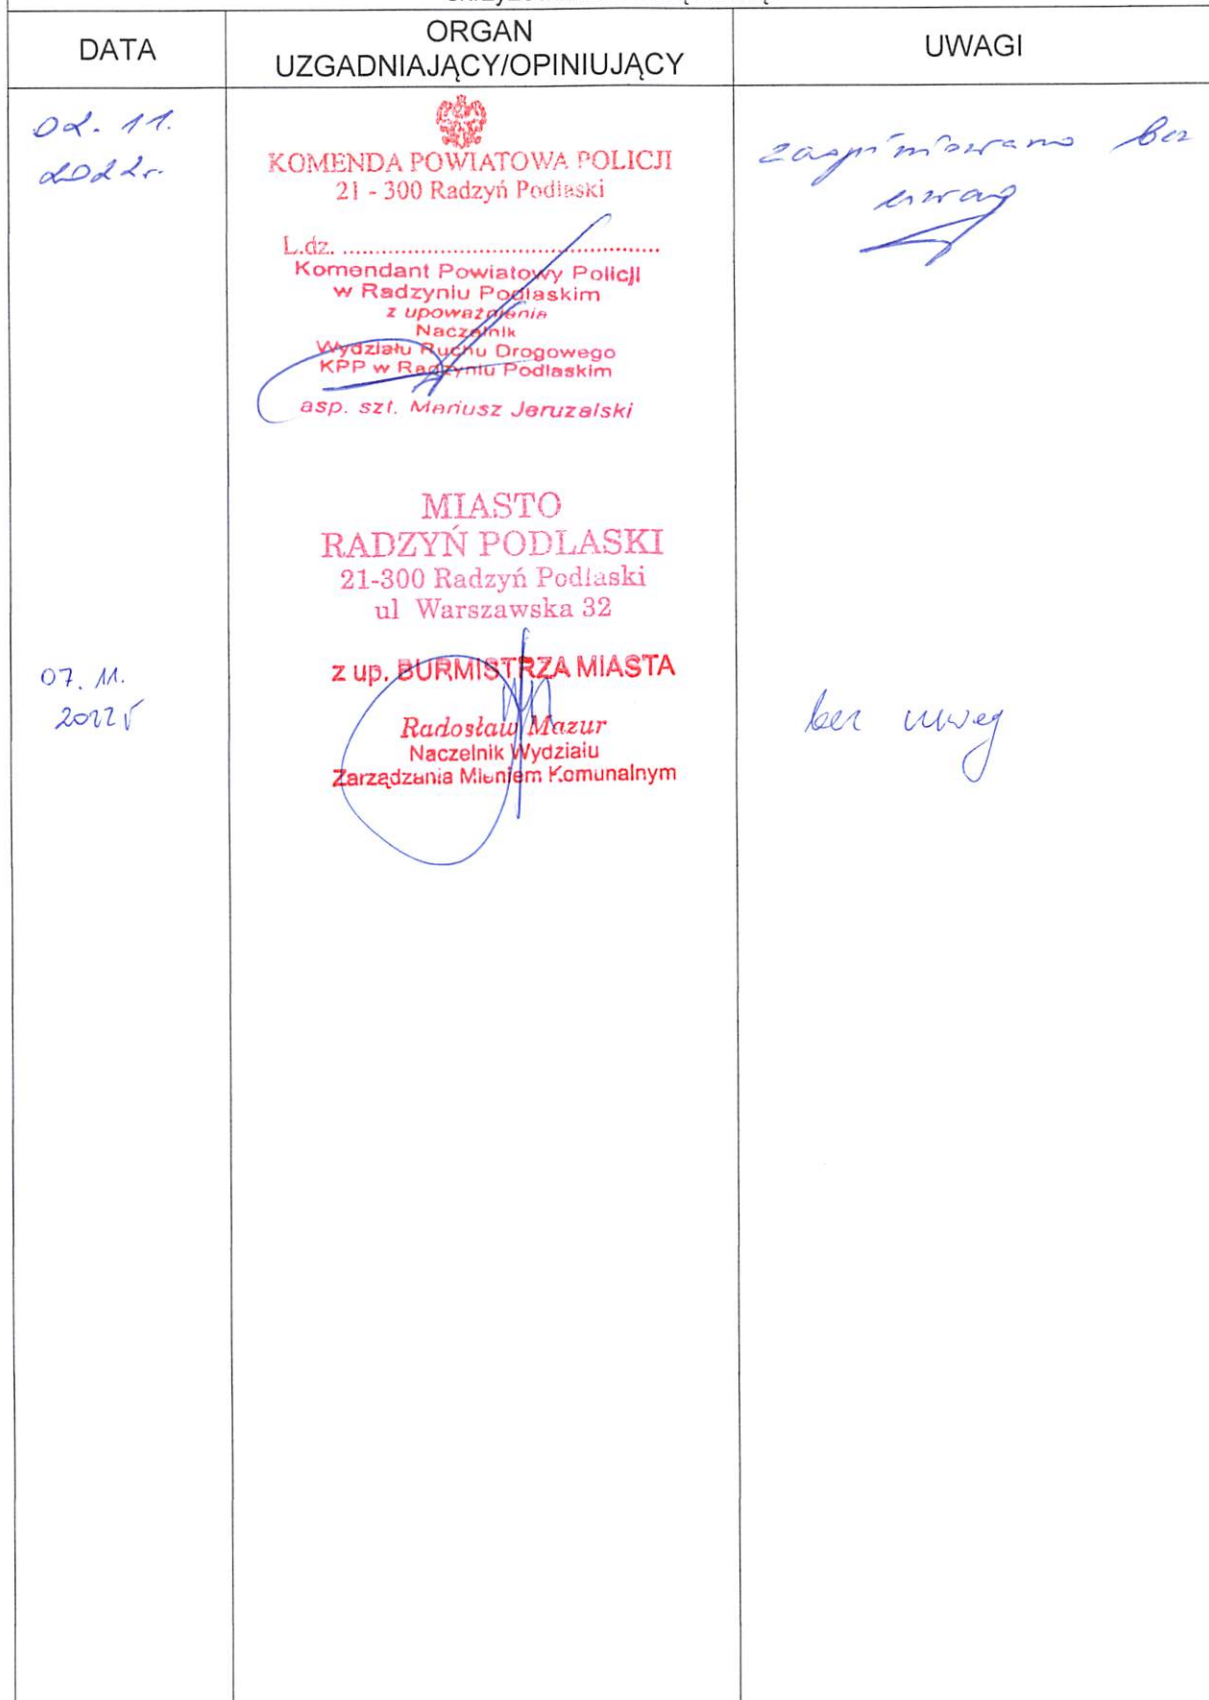 DATA
ORGAN
UZGADNIAJĄCY/OPINIUJĄCY
UWAGI
02. 11.
2022r.
KOMENDA POWIATOWA POLICJI
21 - 300 Radzyń Podlaski
L.dz. ................................................
Komendant Powiatowy Policji
w Radzyniu Podlaskim
z upoważnienia
Naczelnik
Wydziału Ruchu Drogowego
KPP w Radzyniu Podlaskim
asp. szt. Mariusz Jeruzalski
zaopiniowano bez
uwag
MIASTO
RADZYŃ PODLASKI
21-300 Radzyń Podlaski
ul Warszawska 32
07. 11.
2022 r
z up. BURMISTRZA MIASTA
Radosław Mazur
Naczelnik Wydziału
Zarządzania Mieniem Komunalnym
bez uwag